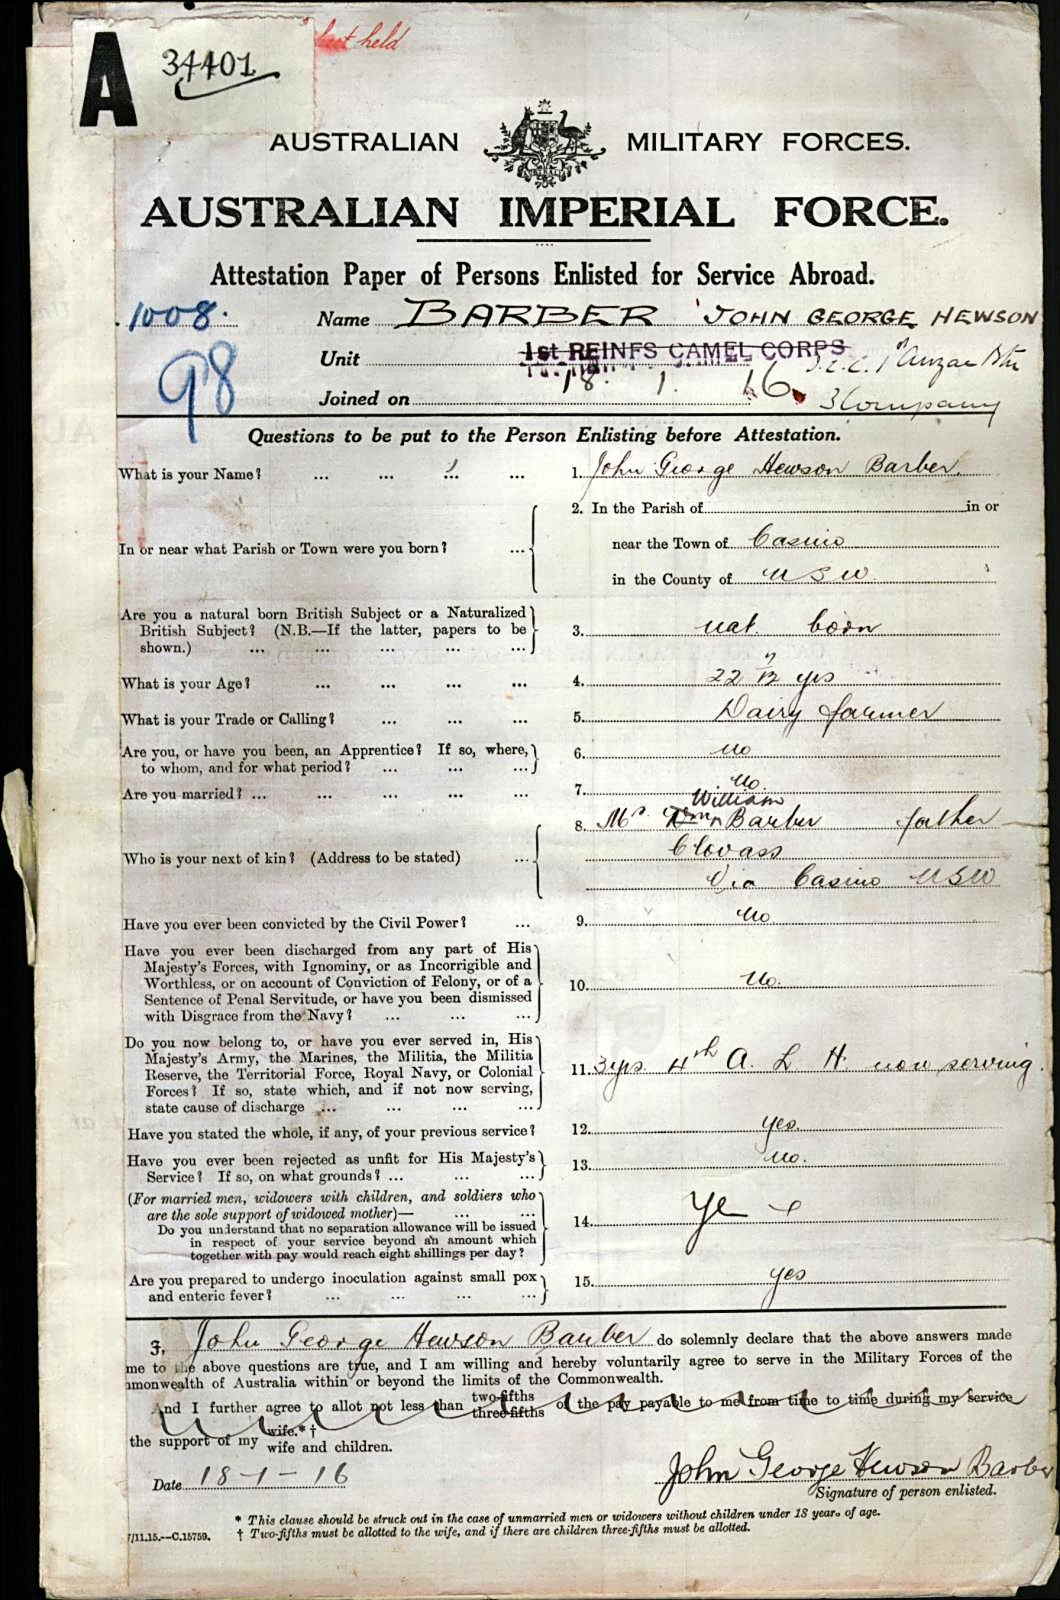 A 34401
last held
AUSTRALIAN MILITARY FORCES.
AUSTRALIAN IMPERIAL FORCE.
Attestation Paper of Persons Enlisted for Service Abroad.
1008. Name BARBER JOHN GEORGE HEWSON
98 Unit 1st REINFS CAMEL CORPS I.C.C. 1st Anzac Btn
Joined on 18. 1. 16. 3 Company
Questions to be put to the Person Enlisting before Attestation.
What is your Name? ... ... ... ... 1. John George Hewson Barber.
2. In the Parish of in or
In or near what Parish or Town were you born? ... near the Town of Casino
in the County of NSW
Are you a natural born British Subject or a Naturalized
British Subject? (N.B.—If the latter, papers to be 3. nat. born
shown.) ... ... ... ... ...
What is your Age? ... ... ... ... 4. 22 7/12 yrs
What is your Trade or Calling? ... ... ... 5. Dairy farmer
Are you, or have you been, an Apprentice? If so, where, 6. no
to whom, and for what period? ... ... ...
Are you married? ... ... ... ... ... 7. No.
William
8. Mr. Wm Barber father
Who is your next of kin? (Address to be stated) ... Clovass
Via Casino NSW
Have you ever been convicted by the Civil Power? ... 9. No
Have you ever been discharged from any part of His
Majesty's Forces, with Ignominy, or as Incorrigible and
Worthless, or on account of Conviction of Felony, or of a 10. No.
Sentence of Penal Servitude, or have you been dismissed
with Disgrace from the Navy? ... ... ...
Do you now belong to, or have you ever served in, His
Majesty's Army, the Marines, the Militia, the Militia
Reserve, the Territorial Force, Royal Navy, or Colonial 11. 3yrs. 4th A. L. H. now serving.
Forces? If so, state which, and if not now serving,
state cause of discharge ... ... ... ...
Have you stated the whole, if any, of your previous service? 12. yes.
Have you ever been rejected as unfit for His Majesty's 13. no.
Service? If so, on what grounds? ... ... ...
(For married men, widowers with children, and soldiers who
are the sole support of widowed mother)— ... ...
Do you understand that no separation allowance will be issued 14.
in respect of your service beyond an amount which
together with pay would reach eight shillings per day?
Are you prepared to undergo inoculation against small pox 15. yes
and enteric fever? ... ... ... ...
3, John George Hewson Barber do solemnly declare that the above answers made
me to the above questions are true, and I am willing and hereby voluntarily agree to serve in the Military Forces of the
mmonwealth of Australia within or beyond the limits of the Commonwealth.
And I further agree to allot not less than two-fifths three-fifths of the pay payable to me from time to time during my service
the support of my wife.*† wife and children.
Date 18-1-16 John George Hewson Barber
Signature of person enlisted.
* This clause should be struck out in the case of unmarried men or widowers without children under 18 years of age.
7/11.15.—C.15759. † Two-fifths must be allotted to the wife, and if there are children three-fifths must be allotted.